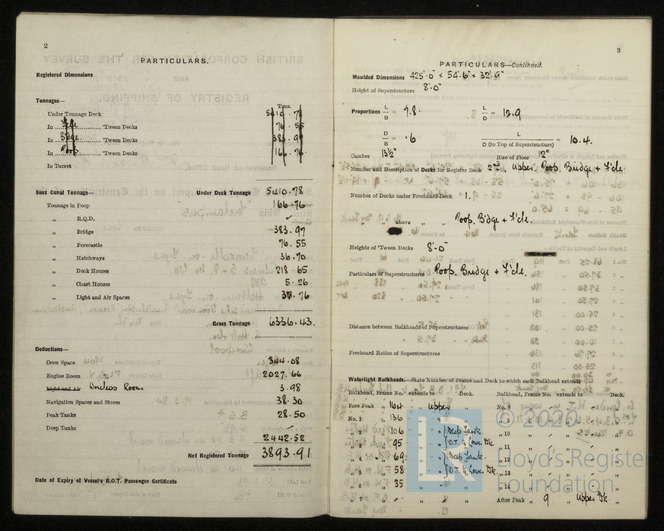 2
PARTICULARS.
Registered Dimensions
Tonnages—
Tons.
Under Tonnage Deck 5410.78
In F'cle 'Tween Decks 76.55
In Bdge 'Tween Decks 383.97
In Poop 'Tween Decks 166.76
In Turret
Suez Canal Tonnage— Under Deck Tonnage 5410.78
Tonnage in Poop 166.76
" R.Q.D.
" Bridge 383.97
" Forecastle 76.55
" Hatchways 36.70
" Deck Houses 218.65
" Chart Houses 5.26
" Light and Air Spaces
Gross Tonnage 6336.43
Deductions—
Crew Space 344.08
Engine Room 2027.66
Light and Air Wireless Room 3.98
Navigation Spaces and Stores 38.30
Peak Tanks 28.50
Deep Tanks
2442.52
Net Registered Tonnage 3893.91
Date of Expiry of Vessel's B.O.T. Passenger Certificate
3
PARTICULARS—Continued.
Moulded Dimensions 425'.0" × 54'.6" × 32'.9"
Height of Superstructure 8'.0"
Proportions L/B = 7.8. L/D = 12.9
D/B = .6 L/D (to Top of Superstructure) = 10.4.
Camber 13½" Rise of Floor 12"
Number and Description of Decks for Register Book Upper, Poop, Bridge + F'cle.
Number of Decks under Freeboard Deck 1.
" above " Poop, Bdge + F'cle.
Heights of 'Tween Decks 8'.0"
Particulars of Superstructures Poop, Bridge + F'cle.
Distance between Bulkheads of Superstructures
Freeboard Ratios of Superstructures
Watertight Bulkheads. State Number of Frame and Deck to which each Bulkhead extends
Bulkhead, Frame No. extends to Deck. Bulkhead, Frame No. extends to Deck.
Fore Peak 164 Upper No. 9
No. 2 136 " 10
106 Deep Tank " 11
95
69 Deep Tank
58
35
After Peak 9 Upper Dk
© 2020
LR
Lloyd's Register
Foundation